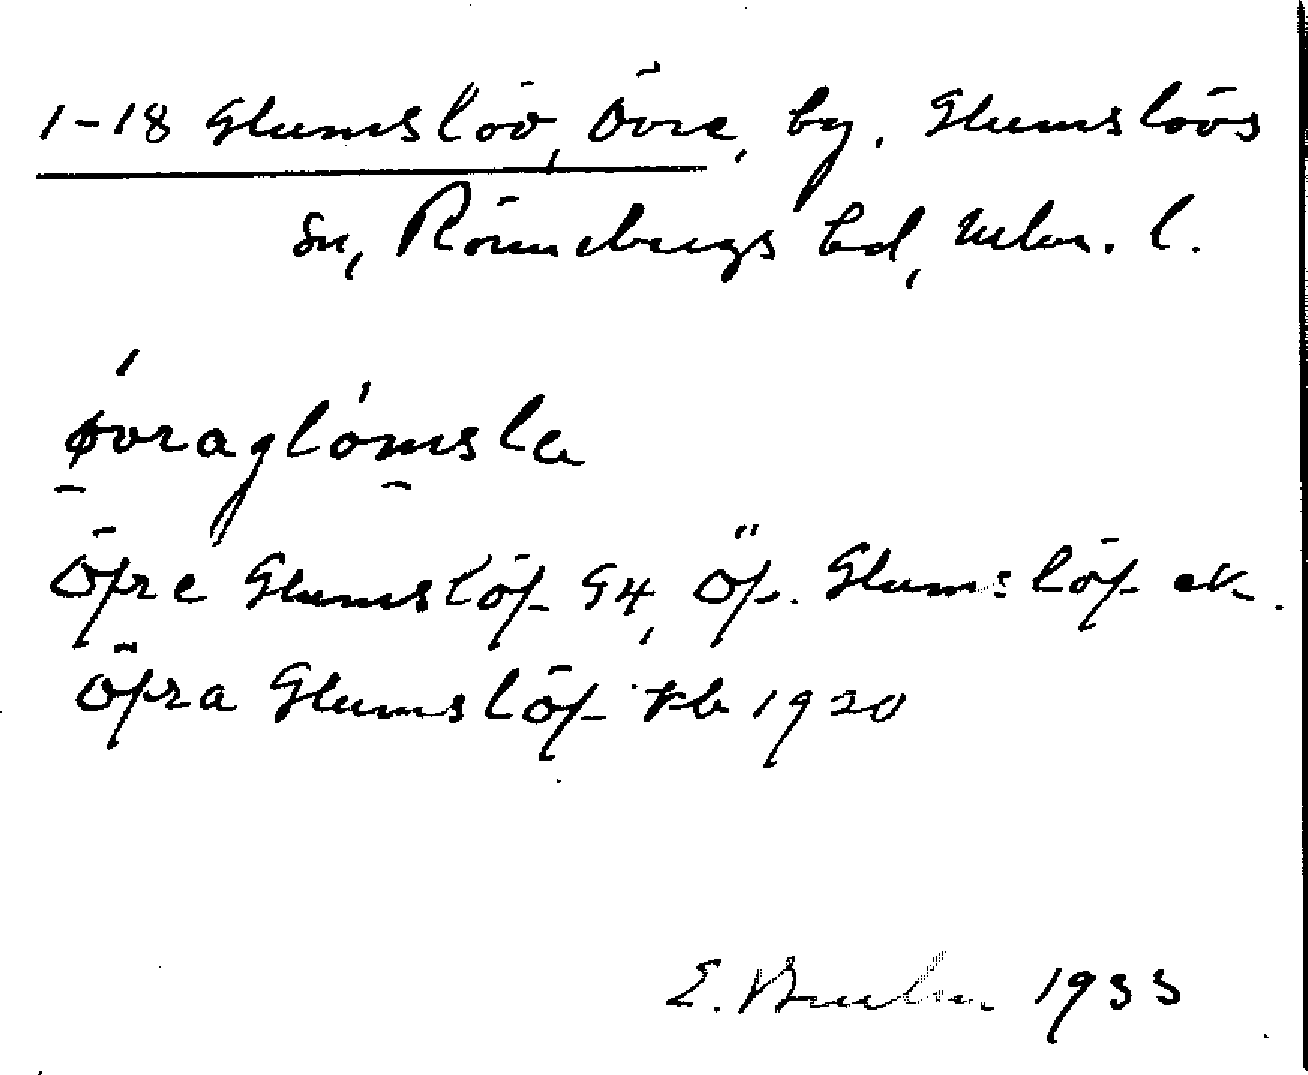 1-18 Glumslöv, Övre, by. Glumslövs
sn, Rönnebergs hd, Mlm. l.
øvraglømsla
Öpre Glumslöf G4, Öp. Glumslöf ek.
Öfra Glumslöf kb 1920
E. 1933